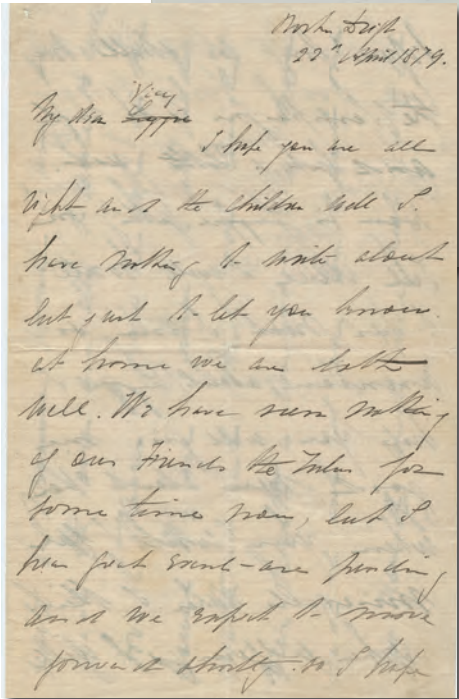 Rorkes Drift
22nd April 1879.
Vicy
My dear Lizzie
I hope you are all
right and the children well I
have nothing to write about
but just to let you know
at home we are both
well. We have seen nothing
of our Friends the Zulus for
some time now, but I
hear great events are pending
and we expect to move
forward shortly. so I hope